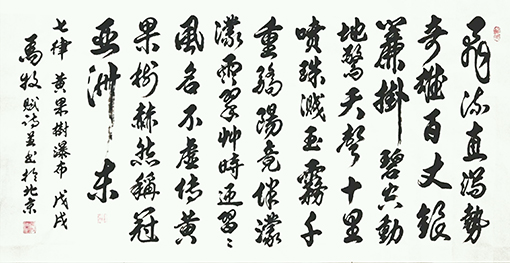 飛流直瀉勢
奇雄百丈銀
簾掛碧空動
地驚天聲十里
噴珠濺玉霧千
重驕陽竟伴濛
濛雨翠艸時迎習々
風名不虛傳黃
果樹赫然稱冠
亞洲東
七律 黃果樹瀑布 戊戌
馬牧賦詩并書於北京